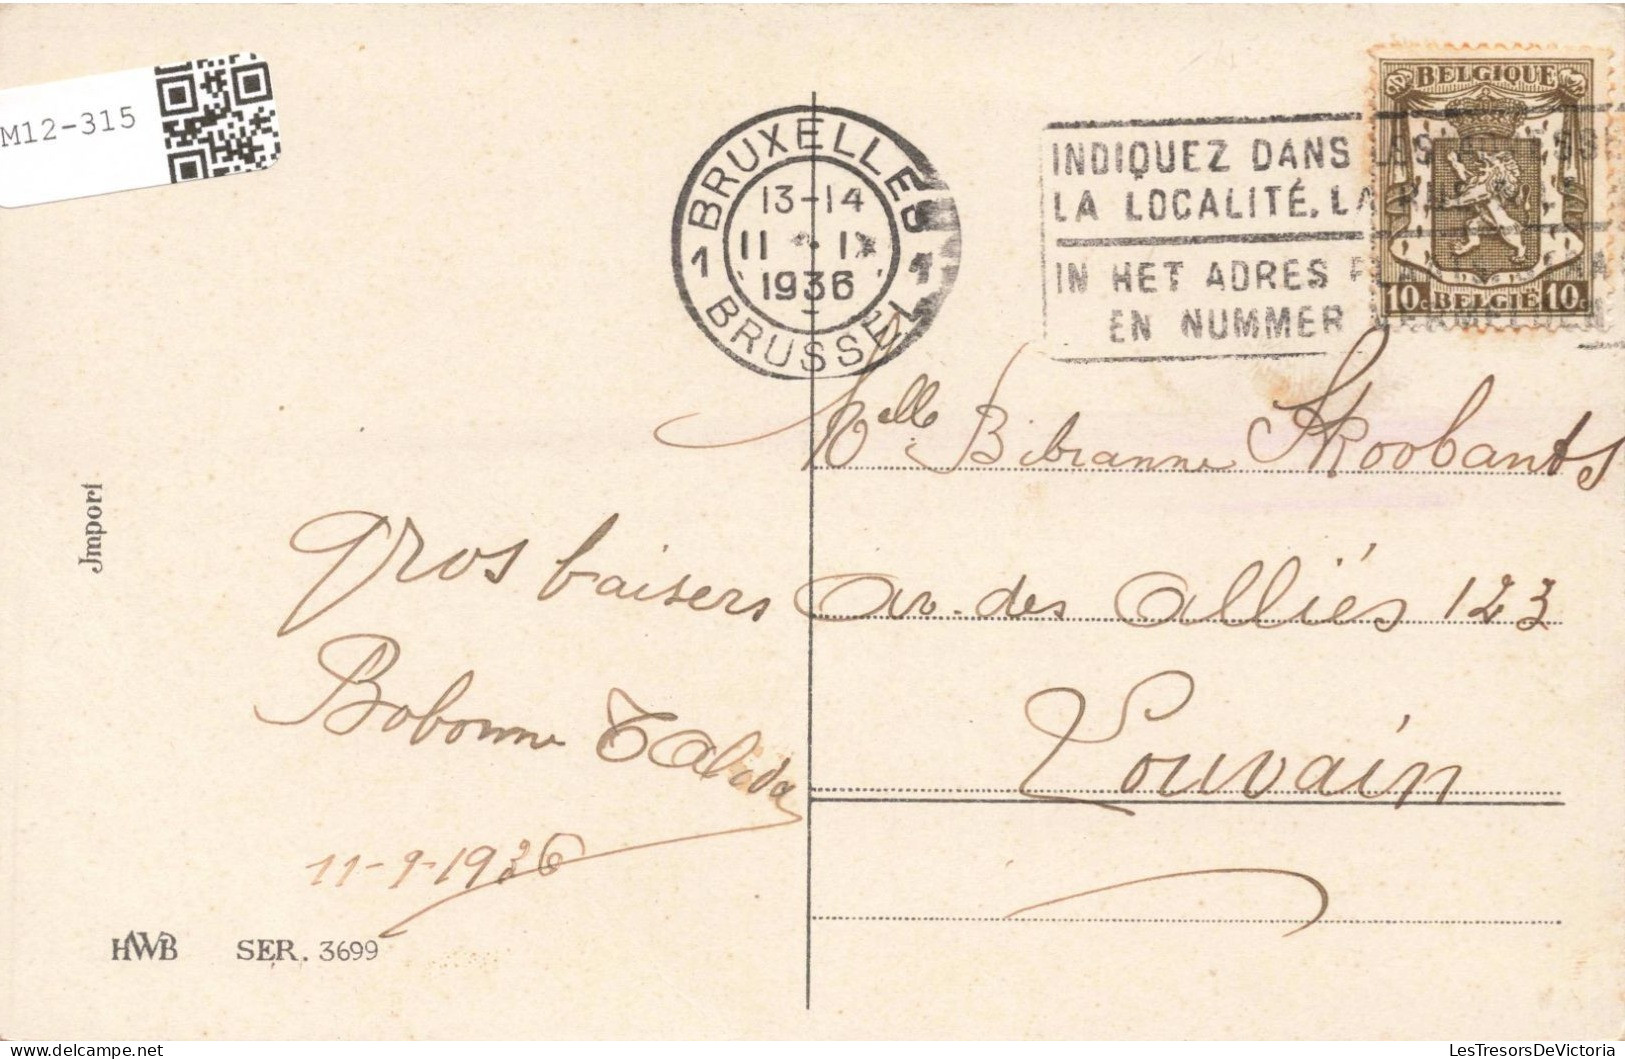 M12-315
BRUXELLES
13-14
11 IX
1936
1 1
BRUSSEL
INDIQUEZ DANS LES ADRESSES
LA LOCALITÉ, LA RUE
IN HET ADRES
EN NUMMER VERMELDEN
BELGIQUE
10c BELGIË 10c
Melle Bibianne Skoobants
av. des Alliés 123
Louvain
Import
gros baisers
Bobonne
11-9-1936
HWB SER. 3699
LesTresorsDeVictoria